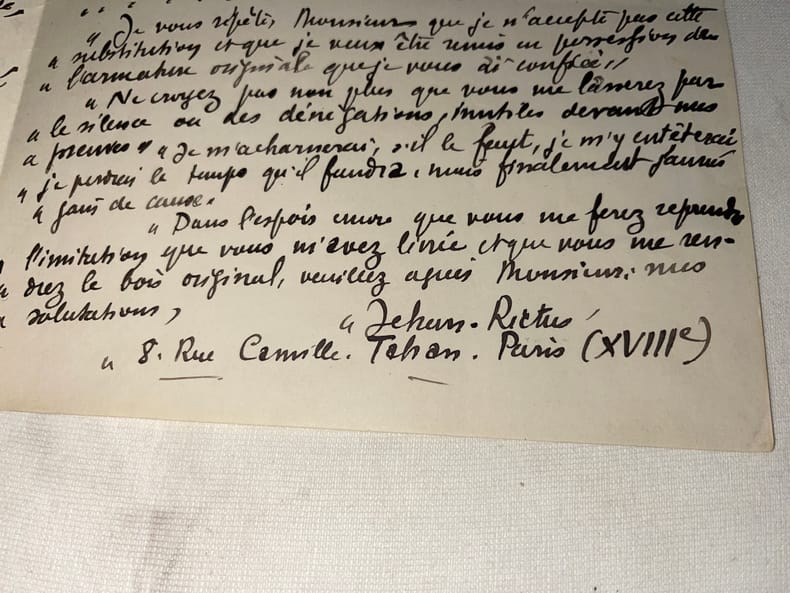 " Je vous répète, Monsieur que je n'accepte pas cette
" substitution et que je veux être remis en possession de
" l'armature originale que je vous ai confiée !!
" Ne croyez pas non plus que vous me lasserez par
" le silence ou des dénégations, inutiles devant mes
" preuves " " Je m'acharnerai, s'il le faut, je m'y entêterai
" je perdrai le temps qu'il faudra, mais finalement j'aurai
" gain de cause.
" Dans l'espoir encore que vous me ferez reprendre
l'imitation que vous m'avez livrée et que vous me ren-
" drez le bois original, veuillez agréer Monsieur, mes
" salutations,
" Jehan-Rictus
" 8. Rue Camille-Tahan. Paris (XVIIIe)